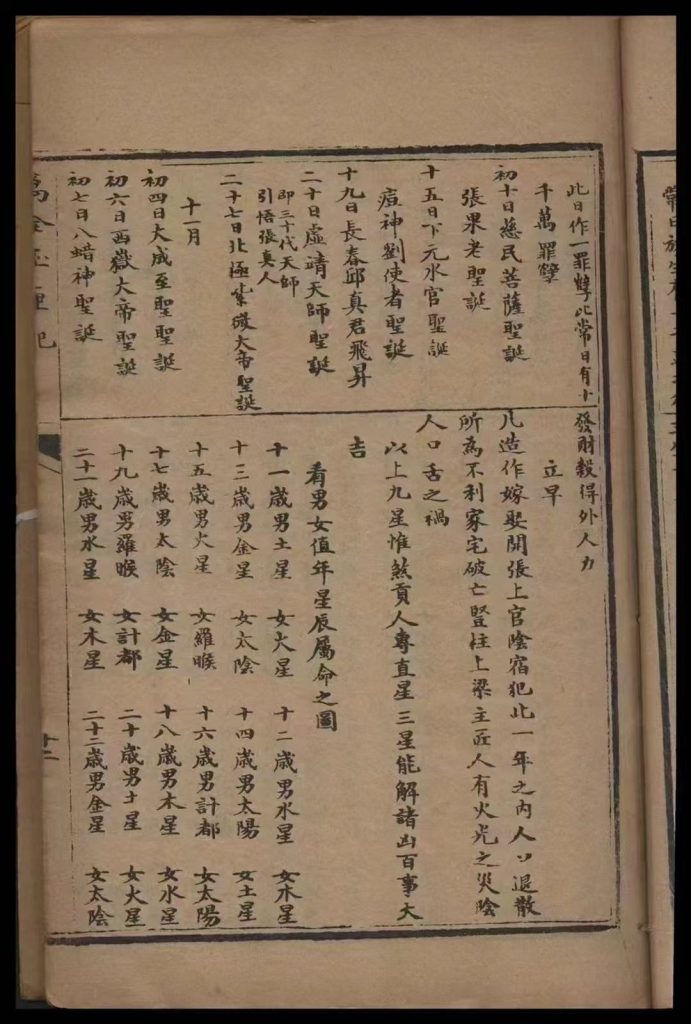 此日作一罪孽比常日有十
千萬罪孽
初十日慈民菩薩聖誕
張果老聖誕
十五日下元水官聖誕
痘神劉使者聖誕
十九日長春邱真君飛昇
二十日虛靖天師聖誕
即三十代天師
引悟張真人
二十七日北極紫微大帝聖誕
十一月
初四日大成至聖聖誕
初六日西嶽大帝聖誕
初七日八蜡神聖誕
發財穀得外人力
立早
凡造作嫁娶開張上官陰宿犯此一年之内人口退散
所為不利家宅破亡豎柱上梁主匠人有火光之災陰
人口舌之禍
以上九星惟煞貢人專直星三星能解諸凶百事大
吉
看男女值年星辰屬命之圖
十一歲男土星 女火星 十二歲男水星 女木星
十三歲男金星 女太陰 十四歲男太陽 女土星
十五歲男火星 女羅睺 十六歲男計都 女太陽
十七歲男太陰 女金星 十八歲男木星 女水星
十九歲男羅睺 女計都 二十歲男土星 女火星
二十一歲男水星 女木星 二十二歲男金星 女太陰
萬全玉匣記
十二